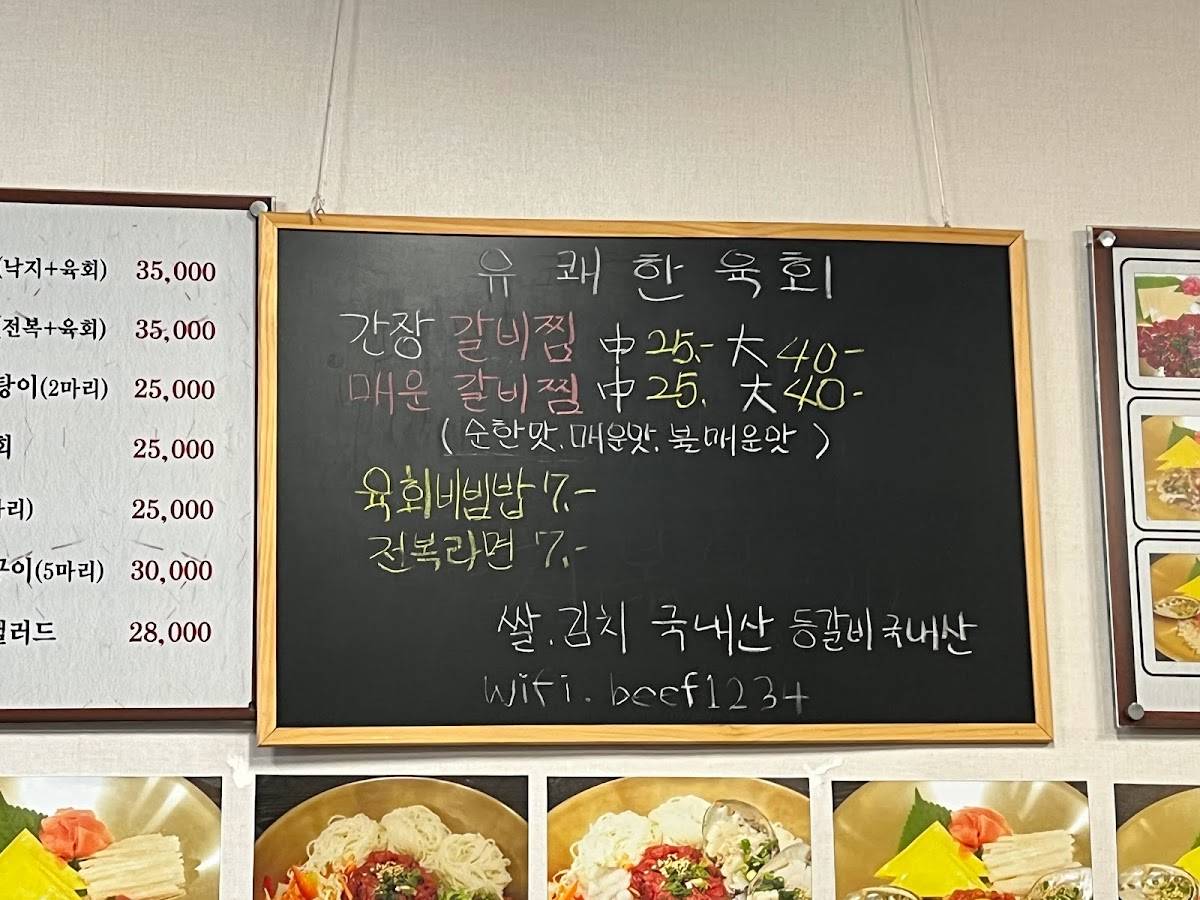 (낙지+육회) 35,000
(전복+육회) 35,000
탕이(2마리) 25,000
회 25,000
마리) 25,000
구이(5마리) 30,000
샐러드 28,000
유쾌한육회
간장 갈비찜 中 25.- 大 40-
매운 갈비찜 中 25. 大 40-
(순한맛.매운맛.불매운맛)
육회비빔밥 7.-
전복라면 7.-
쌀.김치 국내산 등갈비국내산
wifi.beef1234